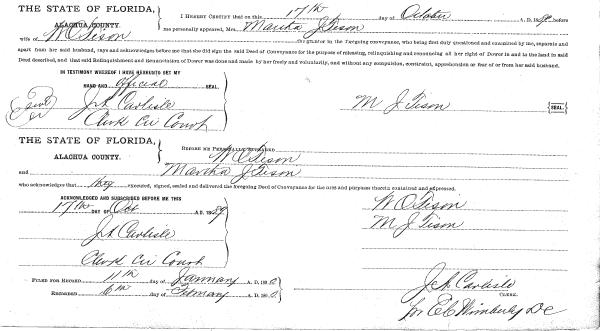 THE STATE OF FLORIDA,
ALACHUA COUNTY.
I HEREBY CERTIFY that on this 17th day of October A. D. 1889 before
me personally appeared, Mrs. Martha J Tison
wife of W O Tison the grantor in the foregoing conveyance, who being first duly questioned and examined by me, separate and
apart from her said husband, says and acknowledges before me that she did sign the said Deed of Conveyance for the purpose of releasing, relinquishing and renouncing all her right of Dower in and to the land in said
Deed described, and that said Relinquishment and Renunciation of Dower was done and made by her freely and voluntarily, and without any compulsion, constraint, apprehension or fear of or from her said husband.
IN TESTIMONY WHEREOF I HERE HEREUNTO SET MY
HAND AND official SEAL.
J A Carlisle
Clerk Cir Court
M J Tison {SEAL.}
THE STATE OF FLORIDA,
ALACHUA COUNTY.
BEFORE ME PERSONALLY APPEARED
W O Tison
and Martha J Tison
who acknowledges that they executed, signed, sealed and delivered the foregoing Deed of Conveyance for the uses and purposes therein contained and expressed.
ACKNOWLEDGED AND SUBSCRIBED BEFORE ME THIS
17th DAY OF Oct A. D. 1889
J A Carlisle
Clerk Cir Court
W O Tison
M J Tison
FILED FOR RECORD 11th day of January A. D. 1890
RECORDED 6th day of February A. D. 1890
J A Carlisle
CLERK.
for E C Wimberly D C